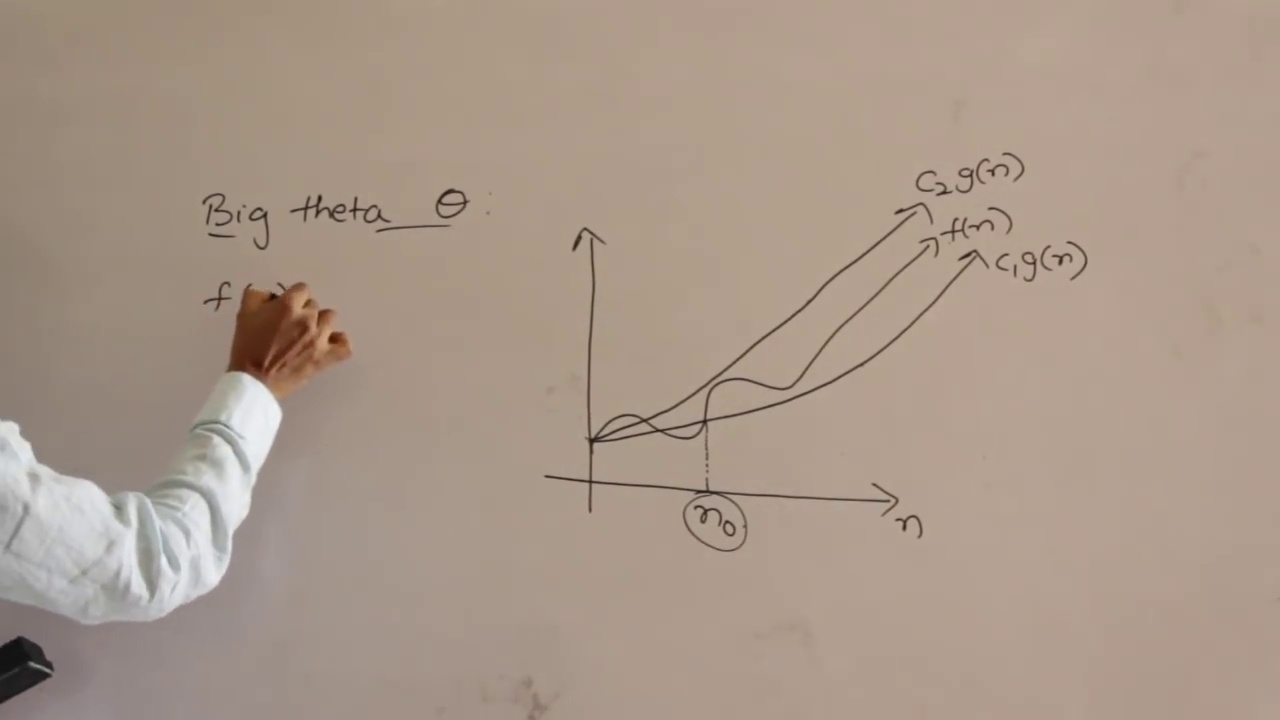 Big theta θ:
f(n)
c₂g(n)
f(n)
c₁g(n)
n₀
n